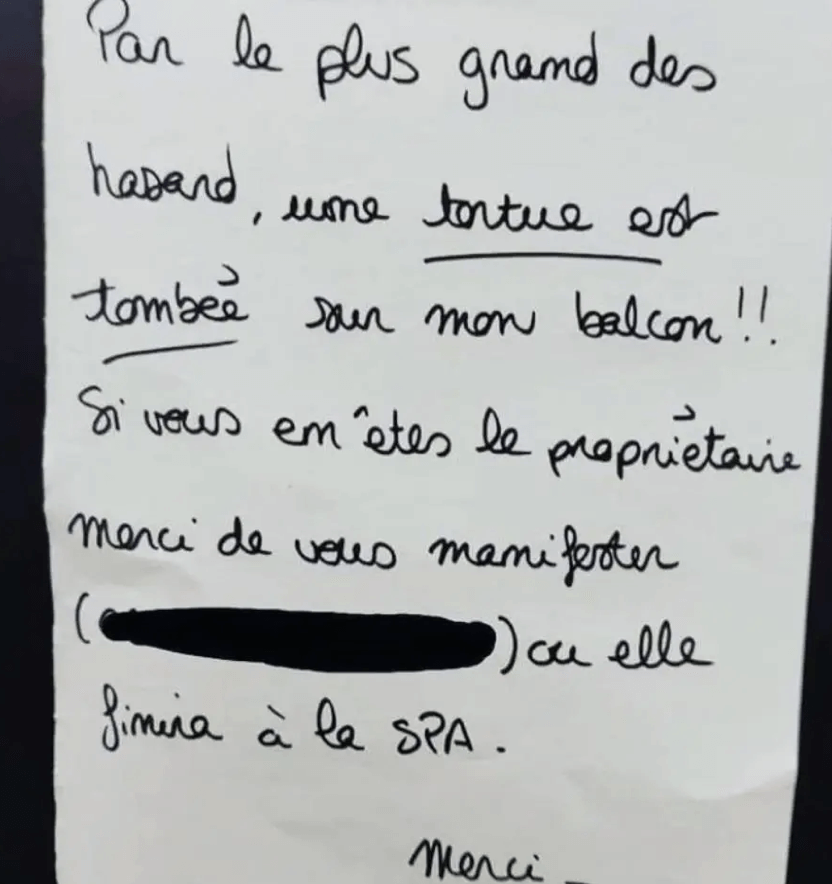 Par le plus grand des
hasard, une tortue est
tombée sur mon balcon!!
Si vous en êtes le propriétaire
merci de vous manifester
( ) ou elle
finira à la SPA.
Merci